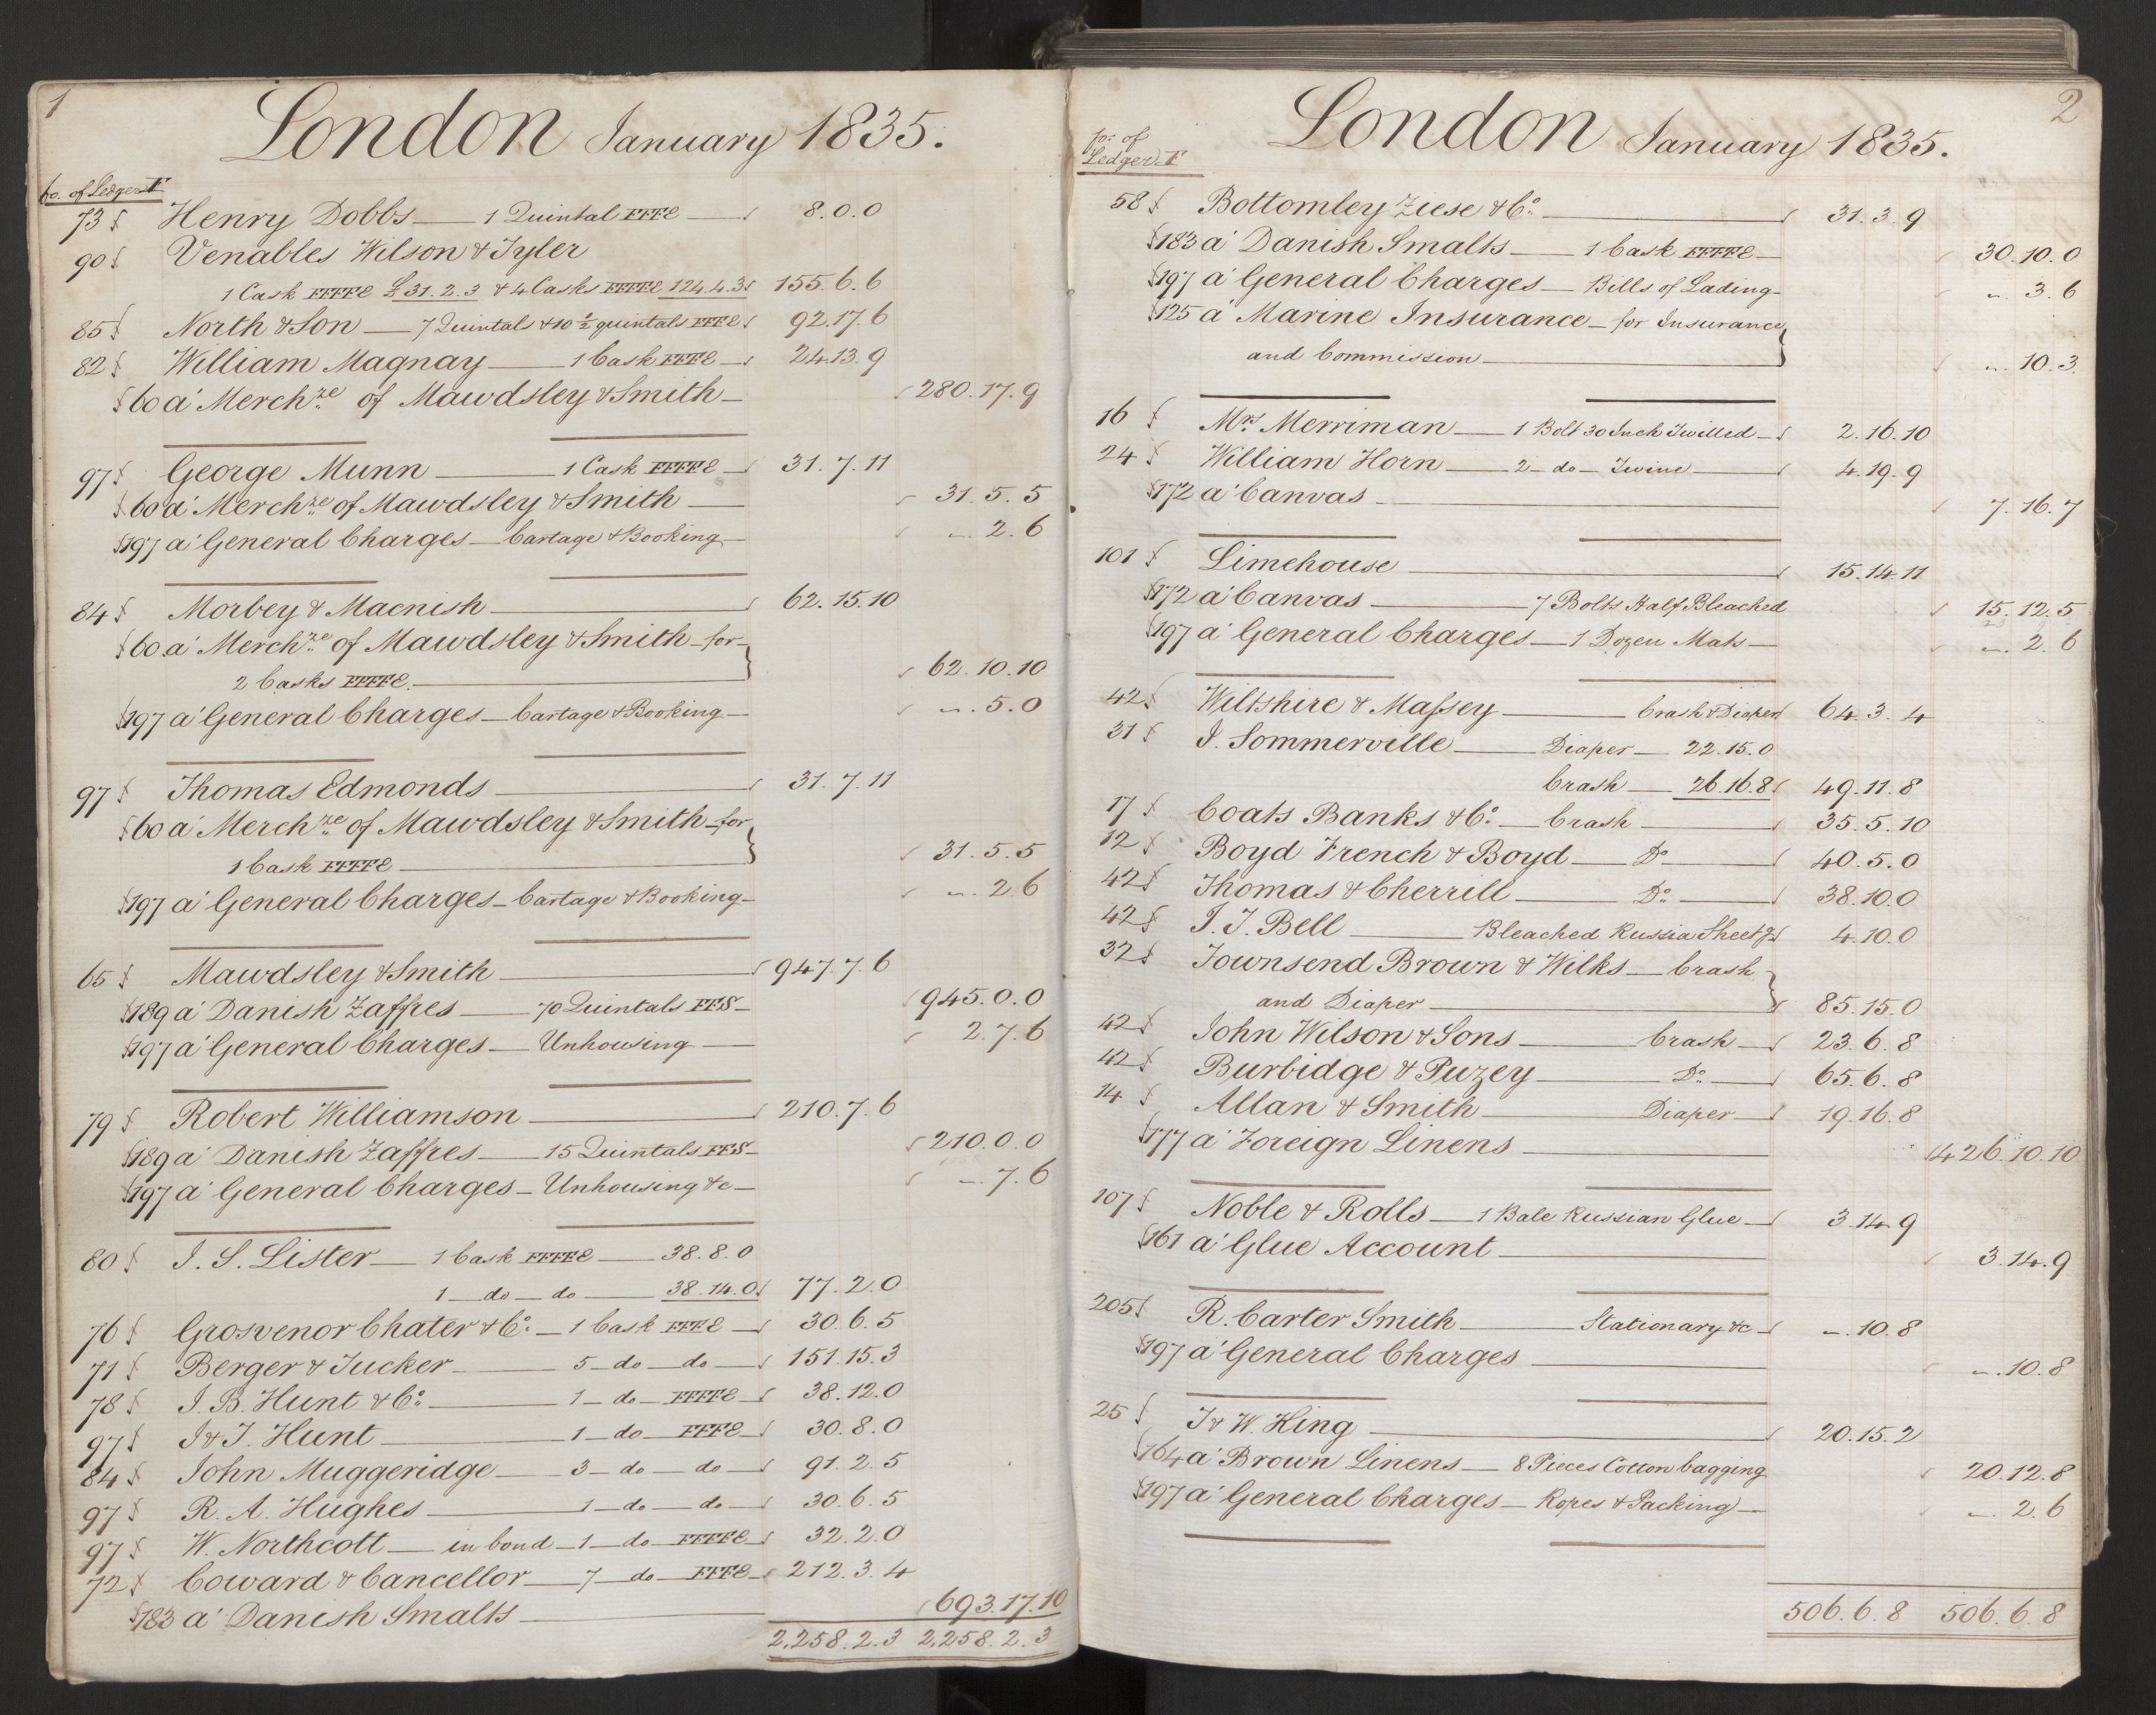 1
London January 1835.
fo. of Ledger F
73 Henry Dobbs 1 Quintal FFFE 8.0.0
90 Venables Wilson & Tyler
1 Cask FFFFE £31.2.3 & 4 Casks FFFFE 124.4.3 155.6.6
85 North & Son 7 Quintals & 10 ½ quintals FFFE 92.17.6
82 William Magnay 1 Cask FFFE 24.13.9
60 a' Merchze of Mawdsley & Smith 280.17.9
97 George Munn 1 Cask FFFFE 31.7.11
60 a' Merchze of Mawdsley & Smith 31.5.5
197 a' General Charges Cartage & Booking „.2.6
84 Morbey & Macnish 62.15.10
60 a' Merchze of Mawdsley & Smith for
2 Casks FFFFE 62.10.10
197 a' General Charges Cartage & Booking „.5.0
97 Thomas Edmonds 31.7.11
60 a' Merchze of Mawdsley & Smith for
1 Cask FFFFE 31.5.5
197 a' General Charges Cartage & Booking „.2.6
65 Mawdsley & Smith 947.7.6
189 a' Danish Zaffres 70 Quintals FFS 945.0.0
197 a' General Charges Unhousing 2.7.6
79 Robert Williamson 210.7.6
189 a' Danish Zaffres 15 Quintals FFS 210.0.0
197 a' General Charges Unhousing &c „.7.6
80 I. S. Lister 1 Cask FFFFE 38.8.0
1 do do 38.14.0 77.2.0
76 Grosvenor Chater & Co. 1 Cask FFFE 30.6.5
71 Berger & Tucker 5 do do 151.15.3
78 I. B. Hunt & Co. 1 do FFFFE 38.12.0
97 I & T. Hunt 1 do FFFE 30.8.0
84 John Muggeridge 3 do do 91.2.5
97 R. A. Hughes 1 do do 30.6.5
97 W. Northcott in bond 1 do FFFFE 32.2.0
72 Coward & Cancellor 7 do FFFE 212.3.4
183 a' Danish Smalts 693.17.10
2,258.2.3 2,258.2.3
2
London January 1835.
fo. of
Ledger F
58 Bottomley Ziese & Co. 31.3.9
183 a' Danish Smalts 1 Cask FFFFE 30.10.0
197 a' General Charges Bills of Lading „.3.6
125 a' Marine Insurance for Insurance
and Commission „.10.3
16 Mrs. Merriman 1 Bolt 30 Inch Twilled 2.16.10
24 William Horn 2 do Twine 4.19.9
172 a' Canvas 7.16.7
101 Limehouse 15.14.11
172 a' Canvas 7 Bolts Half Bleached 15.12.5
197 a' General Charges 1 Dozen Mats „.2.6
42 Wiltshire & Massey Crash & Diaper 64.3.4
31 J. Sommerville Diaper 22.15.0
Crash 26.16.8 49.11.8
17 Coats Banks & Co. Crash 35.5.10
12 Boyd French & Boyd Do 40.5.0
42 Thomas & Cherrill Do. 38.10.0
42 I. J. Bell Bleached Russia Sheetg 4.10.0
32 Townsend Brown & Wilks Crash
and Diaper 85.15.0
42 John Wilson & Sons Crash 23.6.8
42 Burbidge & Puzey Do 65.6.8
14 Allan & Smith Diaper 19.16.8
177 a' Foreign Linens 426.10.10
107 Noble & Rolls 1 Bale Russian Glue 3.14.9
161 a' Glue Account 3.14.9
205 R. Carter Smith Stationary &c „.10.8
197 a' General Charges „.10.8
25 J & W. King 20.15.2
164 a' Brown Linens 8 Pieces Cotton bagging 20.12.8
197 a' General Charges Ropes & Packing „.2.6
506.6.8 506.6.8